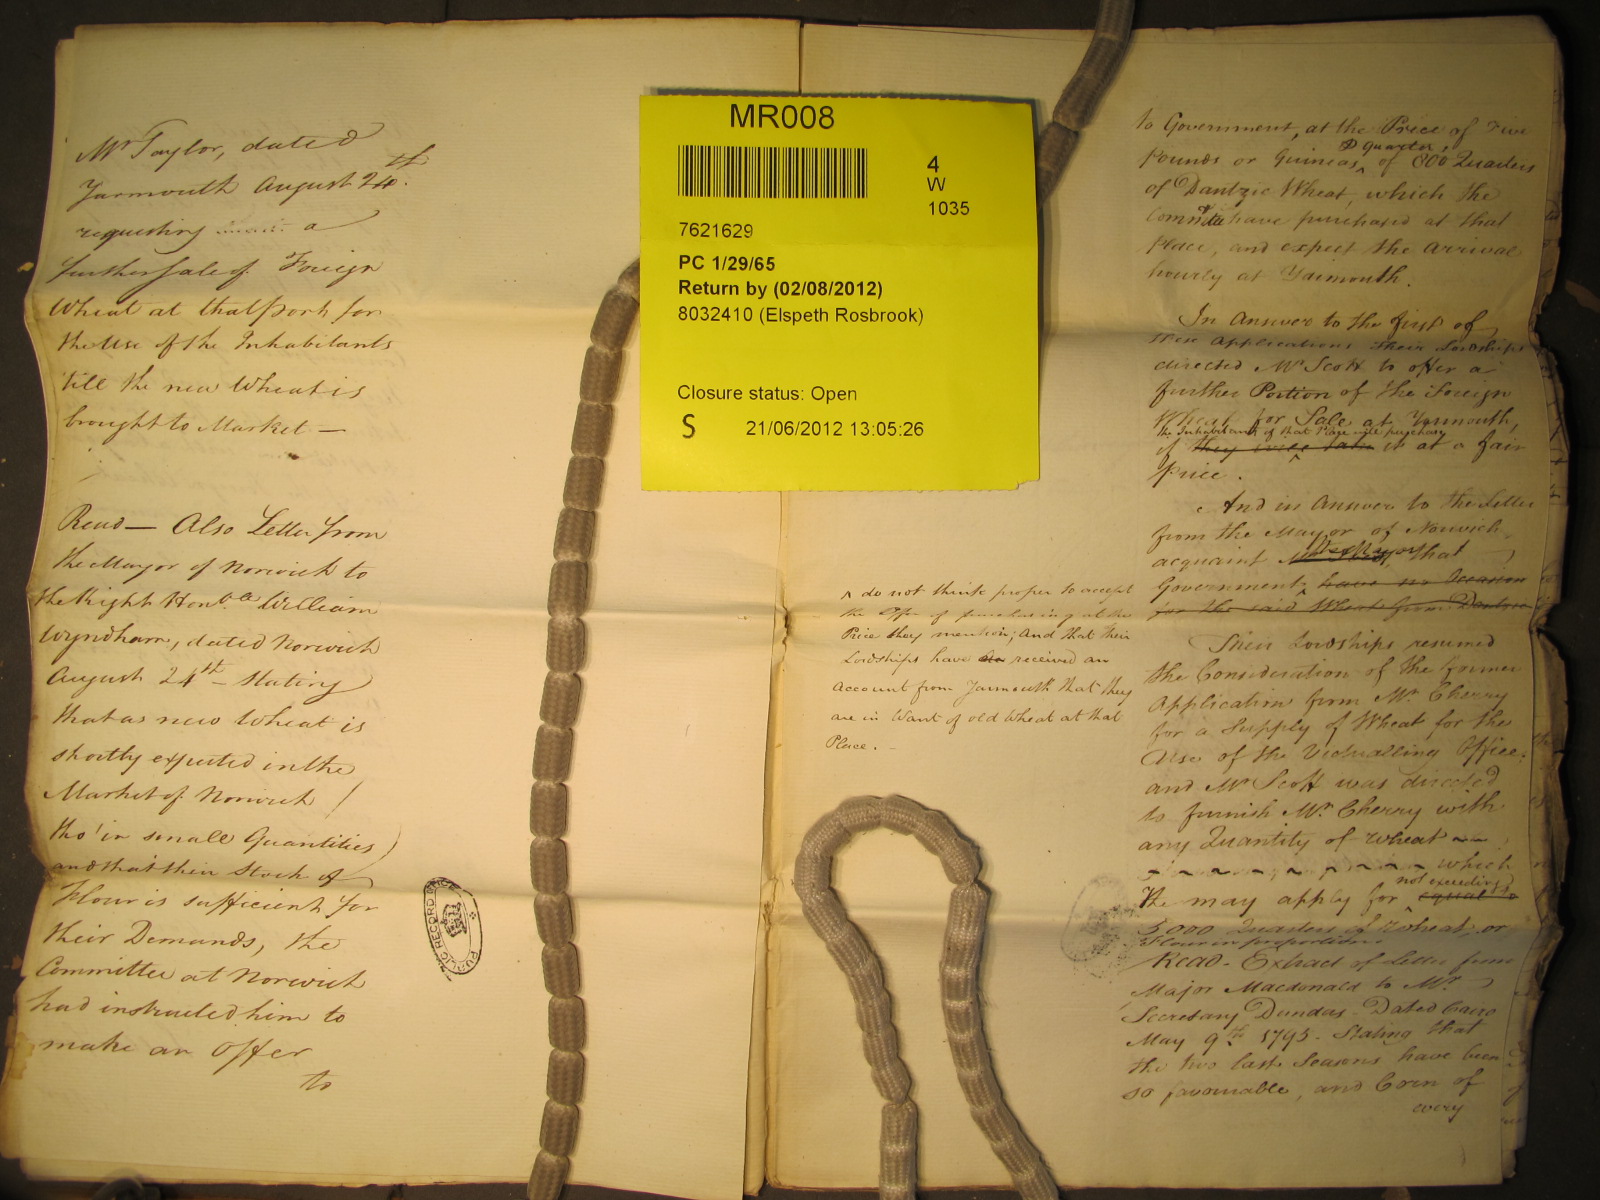 Mr Taylor, dated
Yarmouth August 24th.
requesting a
further sale of Foreign
Wheat at that port for
the Use of the Inhabitants
till the new Wheat is
brought to Market —
Read — Also Letter from
the Mayor of Norwich to
the Right Honble William
Wyndham, dated Norwich
August 24th — Stating
that as new Wheat is
shortly expected in the
Market of Norwich
tho' in small Quantities
and that their Stock of
Flour is sufficient for
their Demands, the
Committee at Norwich
had instructed him to
make an Offer
to
MR008
4
W
1035
7621629
PC 1/29/65
Return by (02/08/2012)
8032410 (Elspeth Rosbrook)
Closure status: Open
S 21/06/2012 13:05:26
PUBLIC RECORD OFFICE
^ do not think proper to accept
the Offer of purchasing at the
Price they mention; And that their
Lordships have received an
Account from Yarmouth that they
are in Want of old Wheat at that
Place. —
to Government, at the Price of Five
℔ quarter,
Pounds or Guineas, ^ of 800 Quarters
of Dantzic Wheat, which the
Committee have purchased at that
Place, and expect the arrival
hourly at Yarmouth.
In Answer to the first of
these Applications their Lordships
directed Mr Scott to offer a
further Portion of the Foreign
Wheat for Sale at Yarmouth,
the Inhabitants of that Place will purchase
if they will take ^ it at a fair
price.
And in Answer to the Letter
from the Mayor of Norwich
acquaint the Mayor, that
Government ^ have no Occasion
for the said Wheat from Dantzic
Their Lordships resumed
the Consideration of the former
Application from Mr. Cherry
for a Supply of Wheat for the
Use of the Victualling Office;
and Mr Scott was directed
to furnish Mr. Cherry with
any Quantity of Wheat
which
not exceeding
he may apply for ^ equal to
5,000 Quarters of Wheat, or
Flour in proportion.
Read — Extract of Letter from
Major Macdonald to Mr.
Secretary Dundas — Dated Cairo
May 9th 1795 — Stating that
the two last Seasons have been
so favourable, and Corn of
every